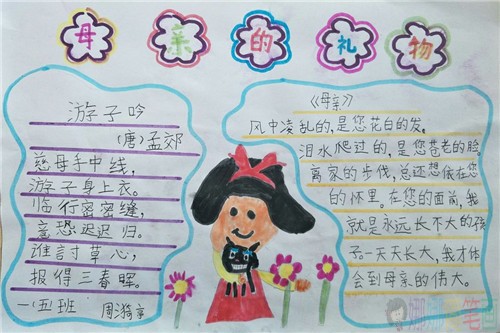 母亲的礼物
游子吟
(唐)孟郊
慈母手中线,
游子身上衣。
临行密密缝,
意恐迟迟归。
谁言寸草心,
报得三春晖。
一(五)班 周漪亭
《母亲》
风中凌乱的,是您花白的发。
泪水爬过的,是您苍老的脸。
离家的步伐,总还想依在您
的怀里。在您的面前,我
就是永远长不大的孩
子。一天天长大,我才体
会到母亲的伟大。